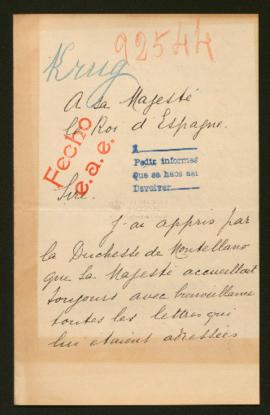 92544
Krug
A Sa Majesté
le Roi d'Espagne.
Fecho
e.a.e.
A
Pedir informes
Que se haga así
Devolver
Sire.
J'ai appris par
la Duchesse de Montellano
que Sa Majesté accueillait
toujours avec bienveillance
toutes les lettres qui
lui étaient adressées